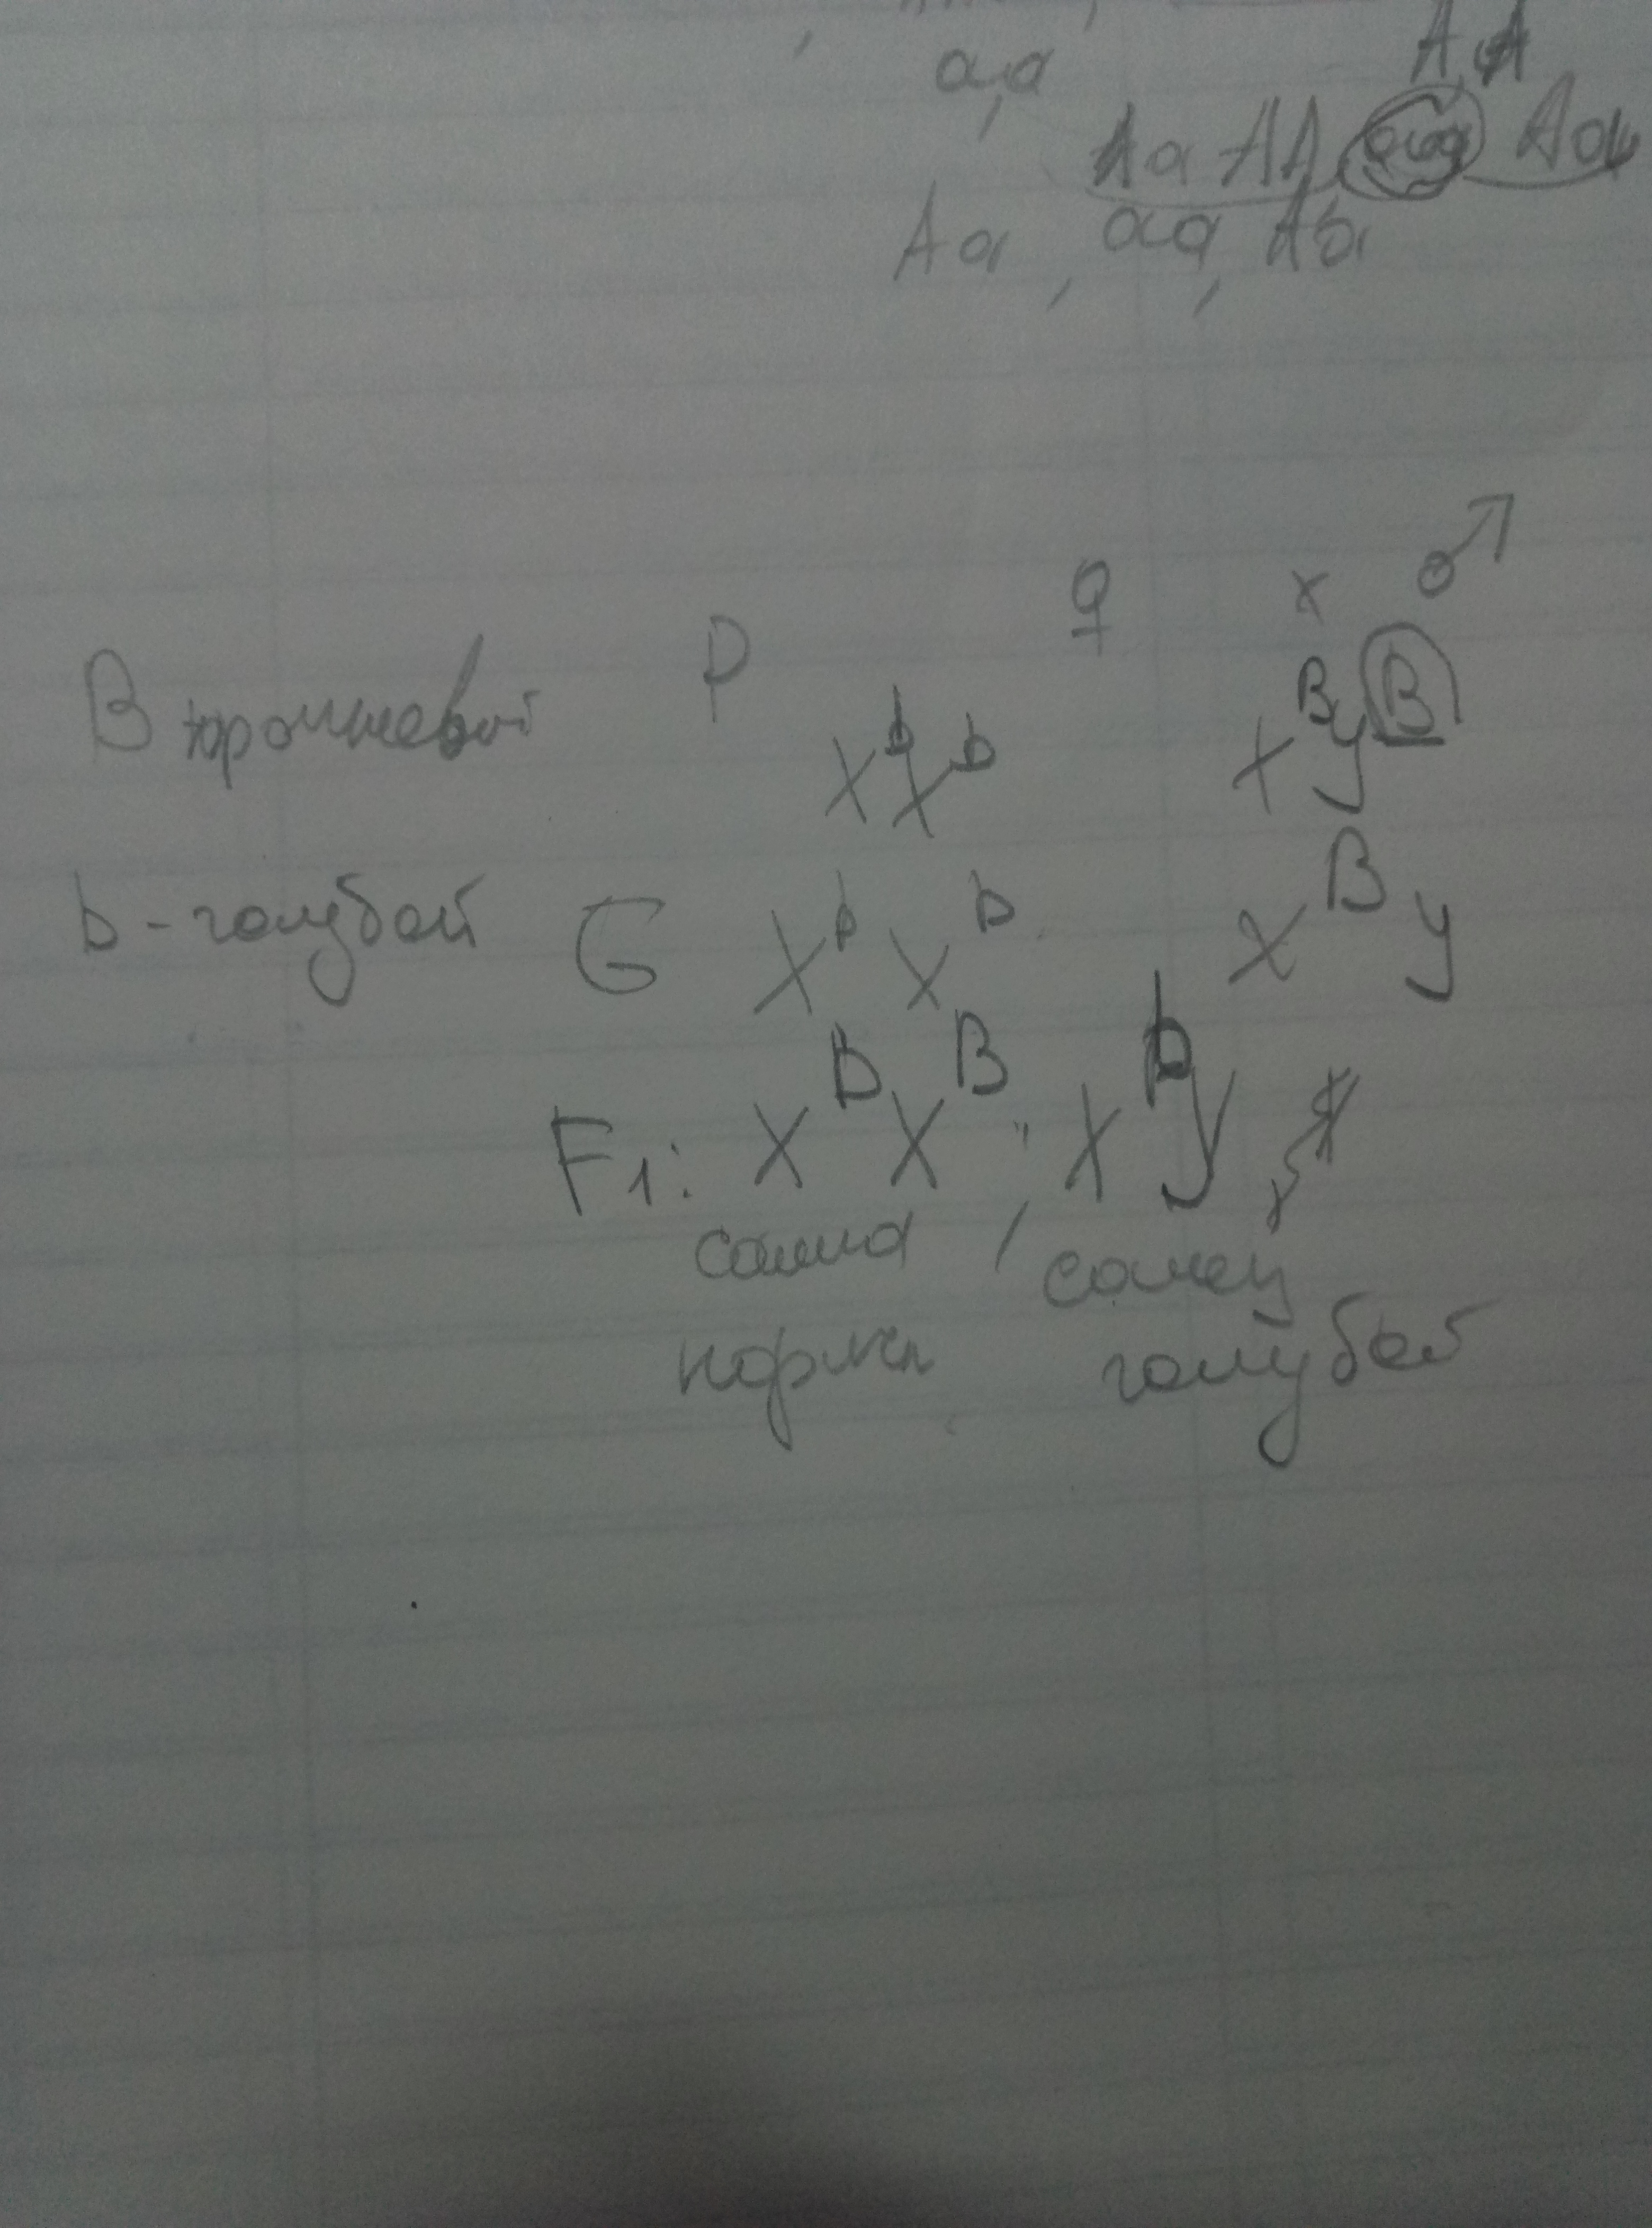 a,a
A A
Aa AA Aa
Aa, aa, Aa
P ♀ x ♂
B коричневой X^b X^b X^B y B
b - голубой G X^b X^b X^B y
F1: X^b X^B ; X^b y
самка , самец
норма голубой